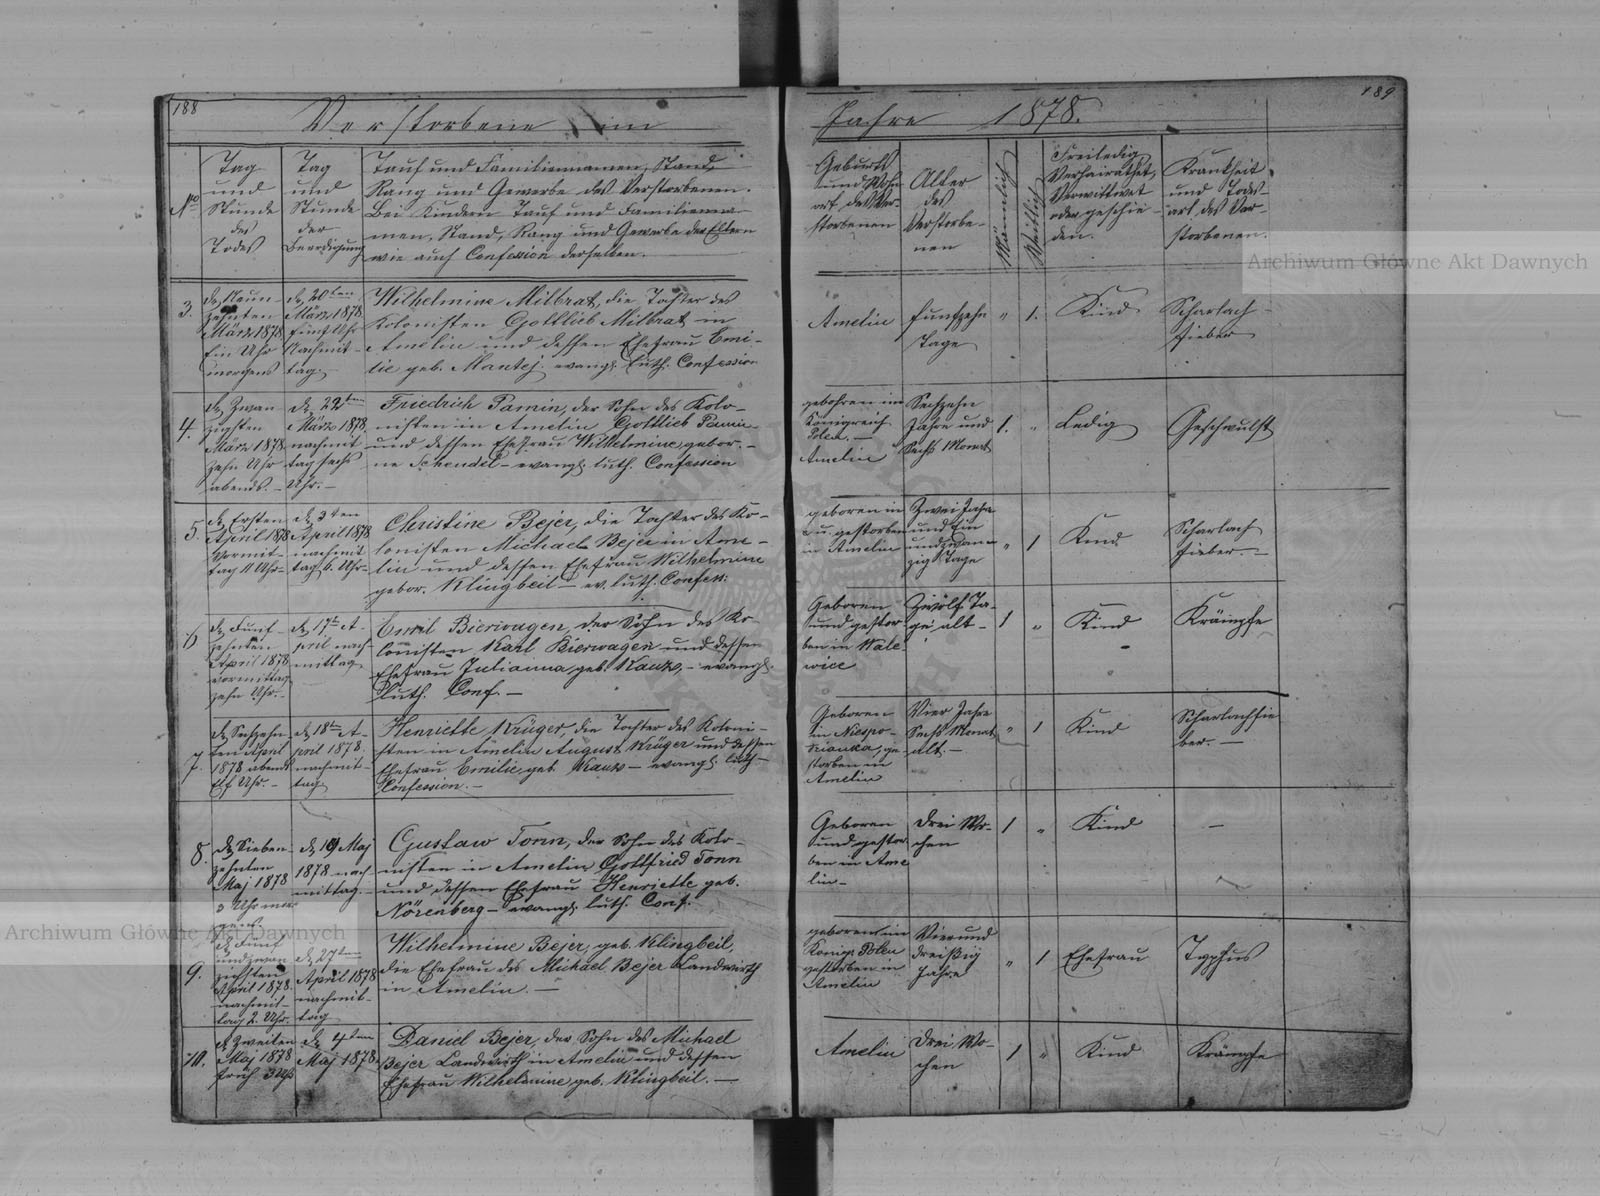 188
Verstorbene im
No
Tag
und
Stunde
des
Todes
Tag
und
Stunde
der
Beerdigung
Tauf und Familiennamen, Stand,
Rang und Gewerbe des Verstorbenen.
Bei Kindern Tauf und Familienna-
men, Stand, Rang und Gewerbe der Eltern
wie auch Confession derselben.
3.
d. Neun-
zehnten
März 1878
Ein Uhr
morgens
d. 20ten
März 1878.
fünf Uhr
Nachmit-
tag.
Wilhelmine Milbrat, die Tochter des
Kolonisten Gottlieb Milbrat in
Amelin und dessen Ehefrau Emi-
lie geb. Mantej. evangl. luth. Confession
4.
d. Zwan
zigsten
März 1878.
zehn Uhr
abends. -
d. 22ten
März 1878.
nachmit
tag sechs
Uhr. -
Friedrich Pamin, der Sohn des Kolo-
nisten in Amelin Gottlieb Pamin
und dessen Ehefrau Wilhelmine, gebor.-
ne Schendel - evangl. luth. Confession
5.
d. Ersten
April 1878
Vormit-
tag 11 Uhr -
d. 3ten
April 1878
nachmit
tag 6. Uhr -
Christine Bejer, die Tochter des Ko-
lonisten Michael Bejer in Ame-
lin und dessen Ehefrau Wilhelmine
gebor. Klingbeil - ev. luth. Confess:
6
d. Fünf-
zehnten
April 1878
vormittag
zehn Uhr. -
d. 17t A-
pril nach-
mittag
Emil Bierwagen, der Sohn des Ko-
lonisten Karl Bierwagen und dessen
Ehefrau Julianna, geb. Kauz, - evangl.
luth. Conf. -
7.
d. Sechzehn
ten April
1878 abend
Elf Uhr. -
d. 18t A-
pril 1878.
nachmit-
tag
Henriette Krüger, die Tochter des Koloni-
sten in Amelin August Krüger und dessen
Ehefrau Emilie, geb. Kauz - evangl. luth -
Confession. -
8.
d. Sieben-
zehnten
Maj 1878
3 Uhr mor
gens.
d. 19 Maj
1878 nach
mittag. -
Gustaw Tonn, der Sohn des Kolo-
nisten in Amelin Gottfried Tonn
und dessen Ehefrau Henriette geb.
Nörenberg - evangl. luth. Conf.
9.
d. Fünf
und zwan
zigsten
April 1878.
nachmit-
tag 2. Uhr.
d. 27ten
April 1878
nachmit-
tag
Wilhelmine Bejer, geb. Klingbeil,
die Ehefrau des Michael Bejer Landwirth
in Amelin. -
10.
d. Zweiten
Maj 1878
früh 3 Uhr
d. 4ten
Maj 1878.
Daniel Bejer, der Sohn des Michael
Bejer Landwirth in Amelin und dessen
Ehefrau Wilhelmine geb. Klingbeil. -
189
Jahre 1878.
Geburts
und Wohn
ort des Ver-
storbenen
Alter
des
Verstorbe-
nen
Männlich
Weiblich
Freiledig
Verheirathet,
Verwittwet
oder geschie-
den.
Krankheit
und Todes-
art des Ver-
storbenen.
Amelin
funfzehn
Tage
"
1.
Kind
Scharlach-
fieber
gebohren im
Königreich
Polen. -
Amelin
Sechzehn
Jahre und
Sechs Monat
1.
"
Ledig
Geschwulst
geboren in
u. gestorben
in Amelin
Zwei Jahr
und Ein
und zwan-
zig Tage
"
1
Kind.
Scharlach
fieber. -
Geboren
und gestor
ben in Wale
wice
Zwölf Ta-
ge alt -
1
"
Kind
Krämpfe
Geboren
in Niespo-
kianka, ge-
storben in
Amelin
Vier Jahre
Sechs Monat
alt. -
"
1
Kind
Scharlachfie
ber. -
Geboren
und gestor
ben in Ame
lin -
Drei Wo-
chen
1
"
Kind
-
geboren im
Königr. Polen
gestorben in
Amelin
Vier und
dreißig
Jahre
"
1
Ehefrau
Typhus
Amelin
Drei Wo-
chen
1
"
Kind
Krämpfe
Archiwum Główne Akt Dawnych
Archiwum Główne Akt Dawnych